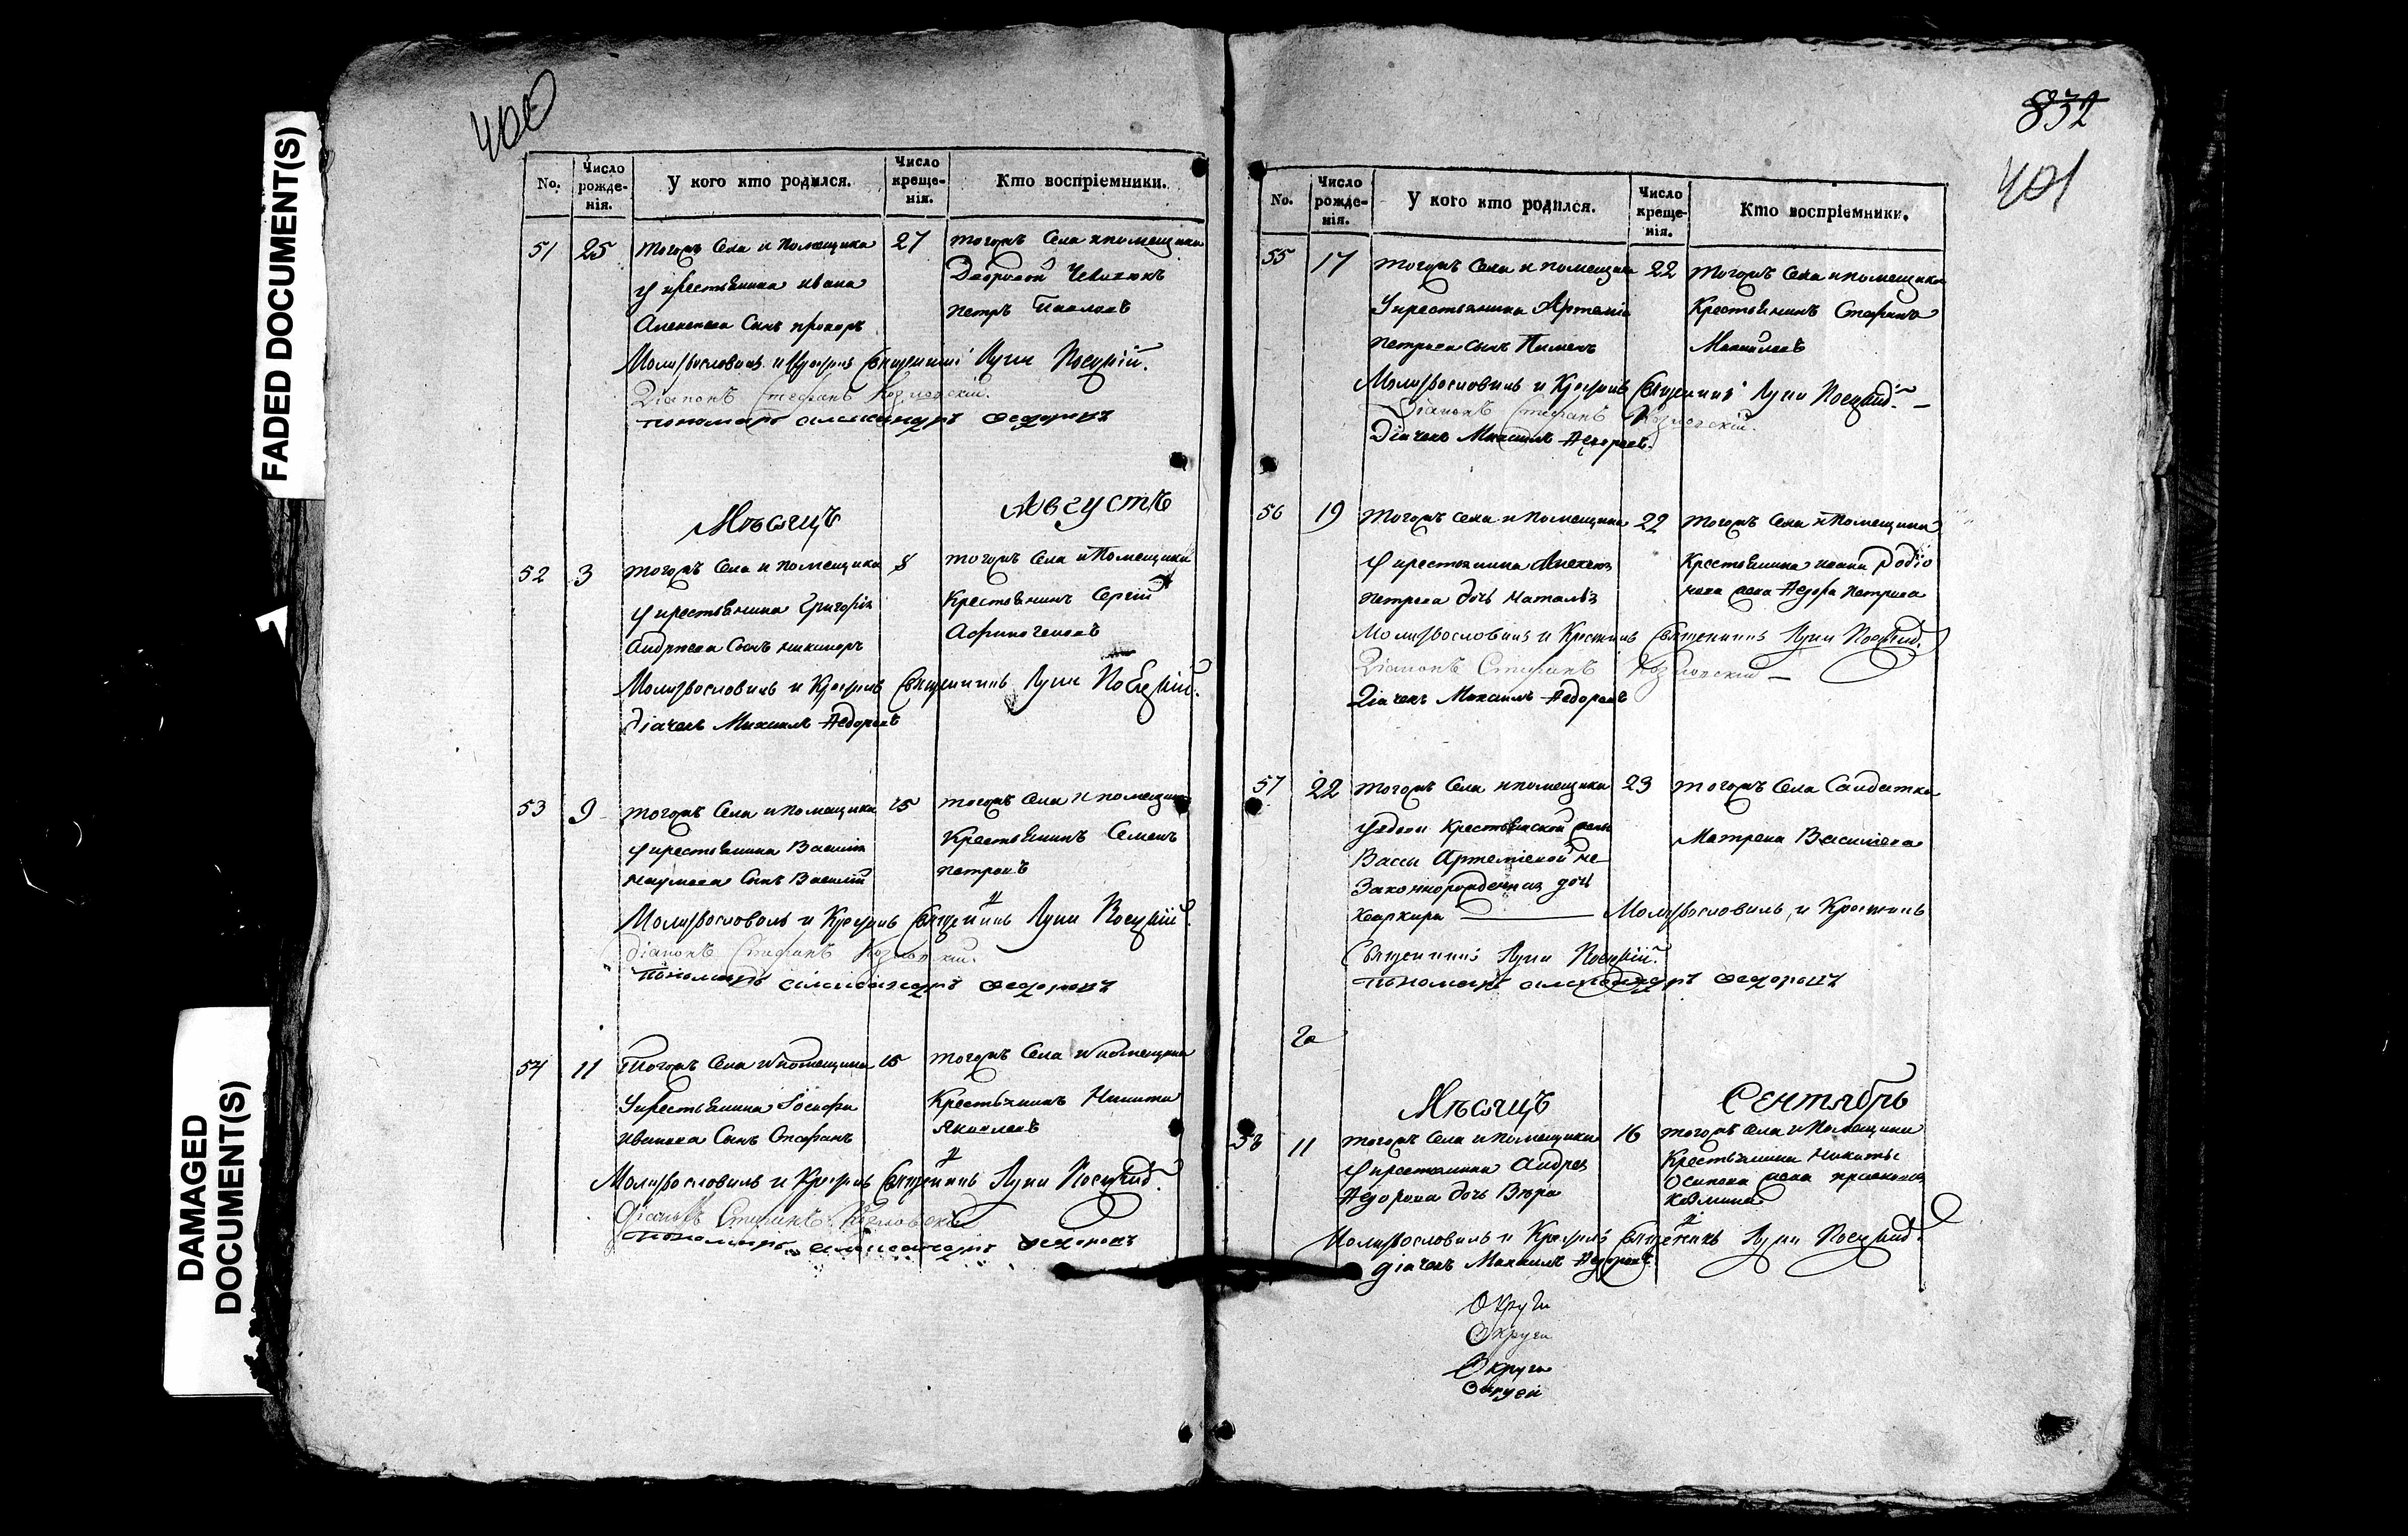 FADED DOCUMENT(S)
DAMAGED
DOCUMENT(S)
400
No. Число рожде- нія. У кого кто родился. Число креще- нія. Кто воспріемники.
51 25 тогожъ Села и помещика 27 тогожъ Села и помещика
у крестьянина ивана Дворовой
Алексеева Сынъ прохоръ петръ Павловъ
Молитвословилъ и Крестилъ Священникъ Луки
Діаконъ Стефанъ Козловскій.
пономарь александръ федоровъ
Мѣсяцъ Августъ
52 3 тогожъ Села и помещика 8 тогожъ Села и Помещика
у крестьянина Григорія Крестьянинъ Сергій
Андреева Сынъ никифоръ Афиногеновъ
Молитвословилъ и Крестилъ Священникъ Луки
діачекъ Михаилъ Федоровъ
53 9 тогожъ Села и помещика 15 тогожъ Села и помещика
у крестьянина Василія Крестьянинъ Семенъ
наумова Сынъ Василій петровъ
Молитвословилъ и Крестилъ Священникъ Луки
діаконъ Стефанъ Козловскій.
пономарь александръ федоровъ
54 11 Тогожъ Села и помещика 15 тогожъ Села и помещика
У крестьянина Іосифа Крестьянинъ Никита
иванова Сынъ Стефанъ Яковлевъ
Молитвословилъ и Крестилъ Священникъ Луки
Діаконъ Стефанъ Козловскій
пономарь александръ федоровъ
832
401
No. Число рожде- нія. У кого кто родился. Число креще- нія. Кто воспріемники.
55 17 тогожъ Села и помещика 22 тогожъ Села и помещика
У крестьянина Артемія Крестьянинъ Стефанъ
петрова сынъ Пименъ
Молитвословилъ и Крестилъ Священникъ Луки
Діаконъ Стефанъ Козловскій.
Діачекъ Михаилъ Федоровъ.
56 19 тогожъ села и помещика 22 тогожъ Села и Помещика
у крестьянина Алексея Крестьянина ивана Родіо
петрова дочь наталья нова жена Федора петрова
Молитвословилъ и Крестилъ Священникъ Луки
Діаконъ Стефанъ Козловскій
Діачекъ Михаилъ Федоровъ
57 22 тогожъ Села и помещика 23 тогожъ Села Салдатка
у вдовы Крестьянской жены Матрена Василиева
Вассы Артеміевой не-
Законнорожденная дочь
Молитвословилъ и Крестилъ
Священникъ Луки
пономарь александръ федоровъ
Мѣсяцъ Сентябрь
58 11 тогожъ Села и помещика 16 тогожъ Села и Помещика
у крестьянина Андрея Крестьянина никиты
Федорова дочь Вера Осипова жена
Молитвословилъ и Крестилъ Священникъ Луки
діачекъ Михаилъ Федоровъ.
Округи
Округи
Округи
Округи